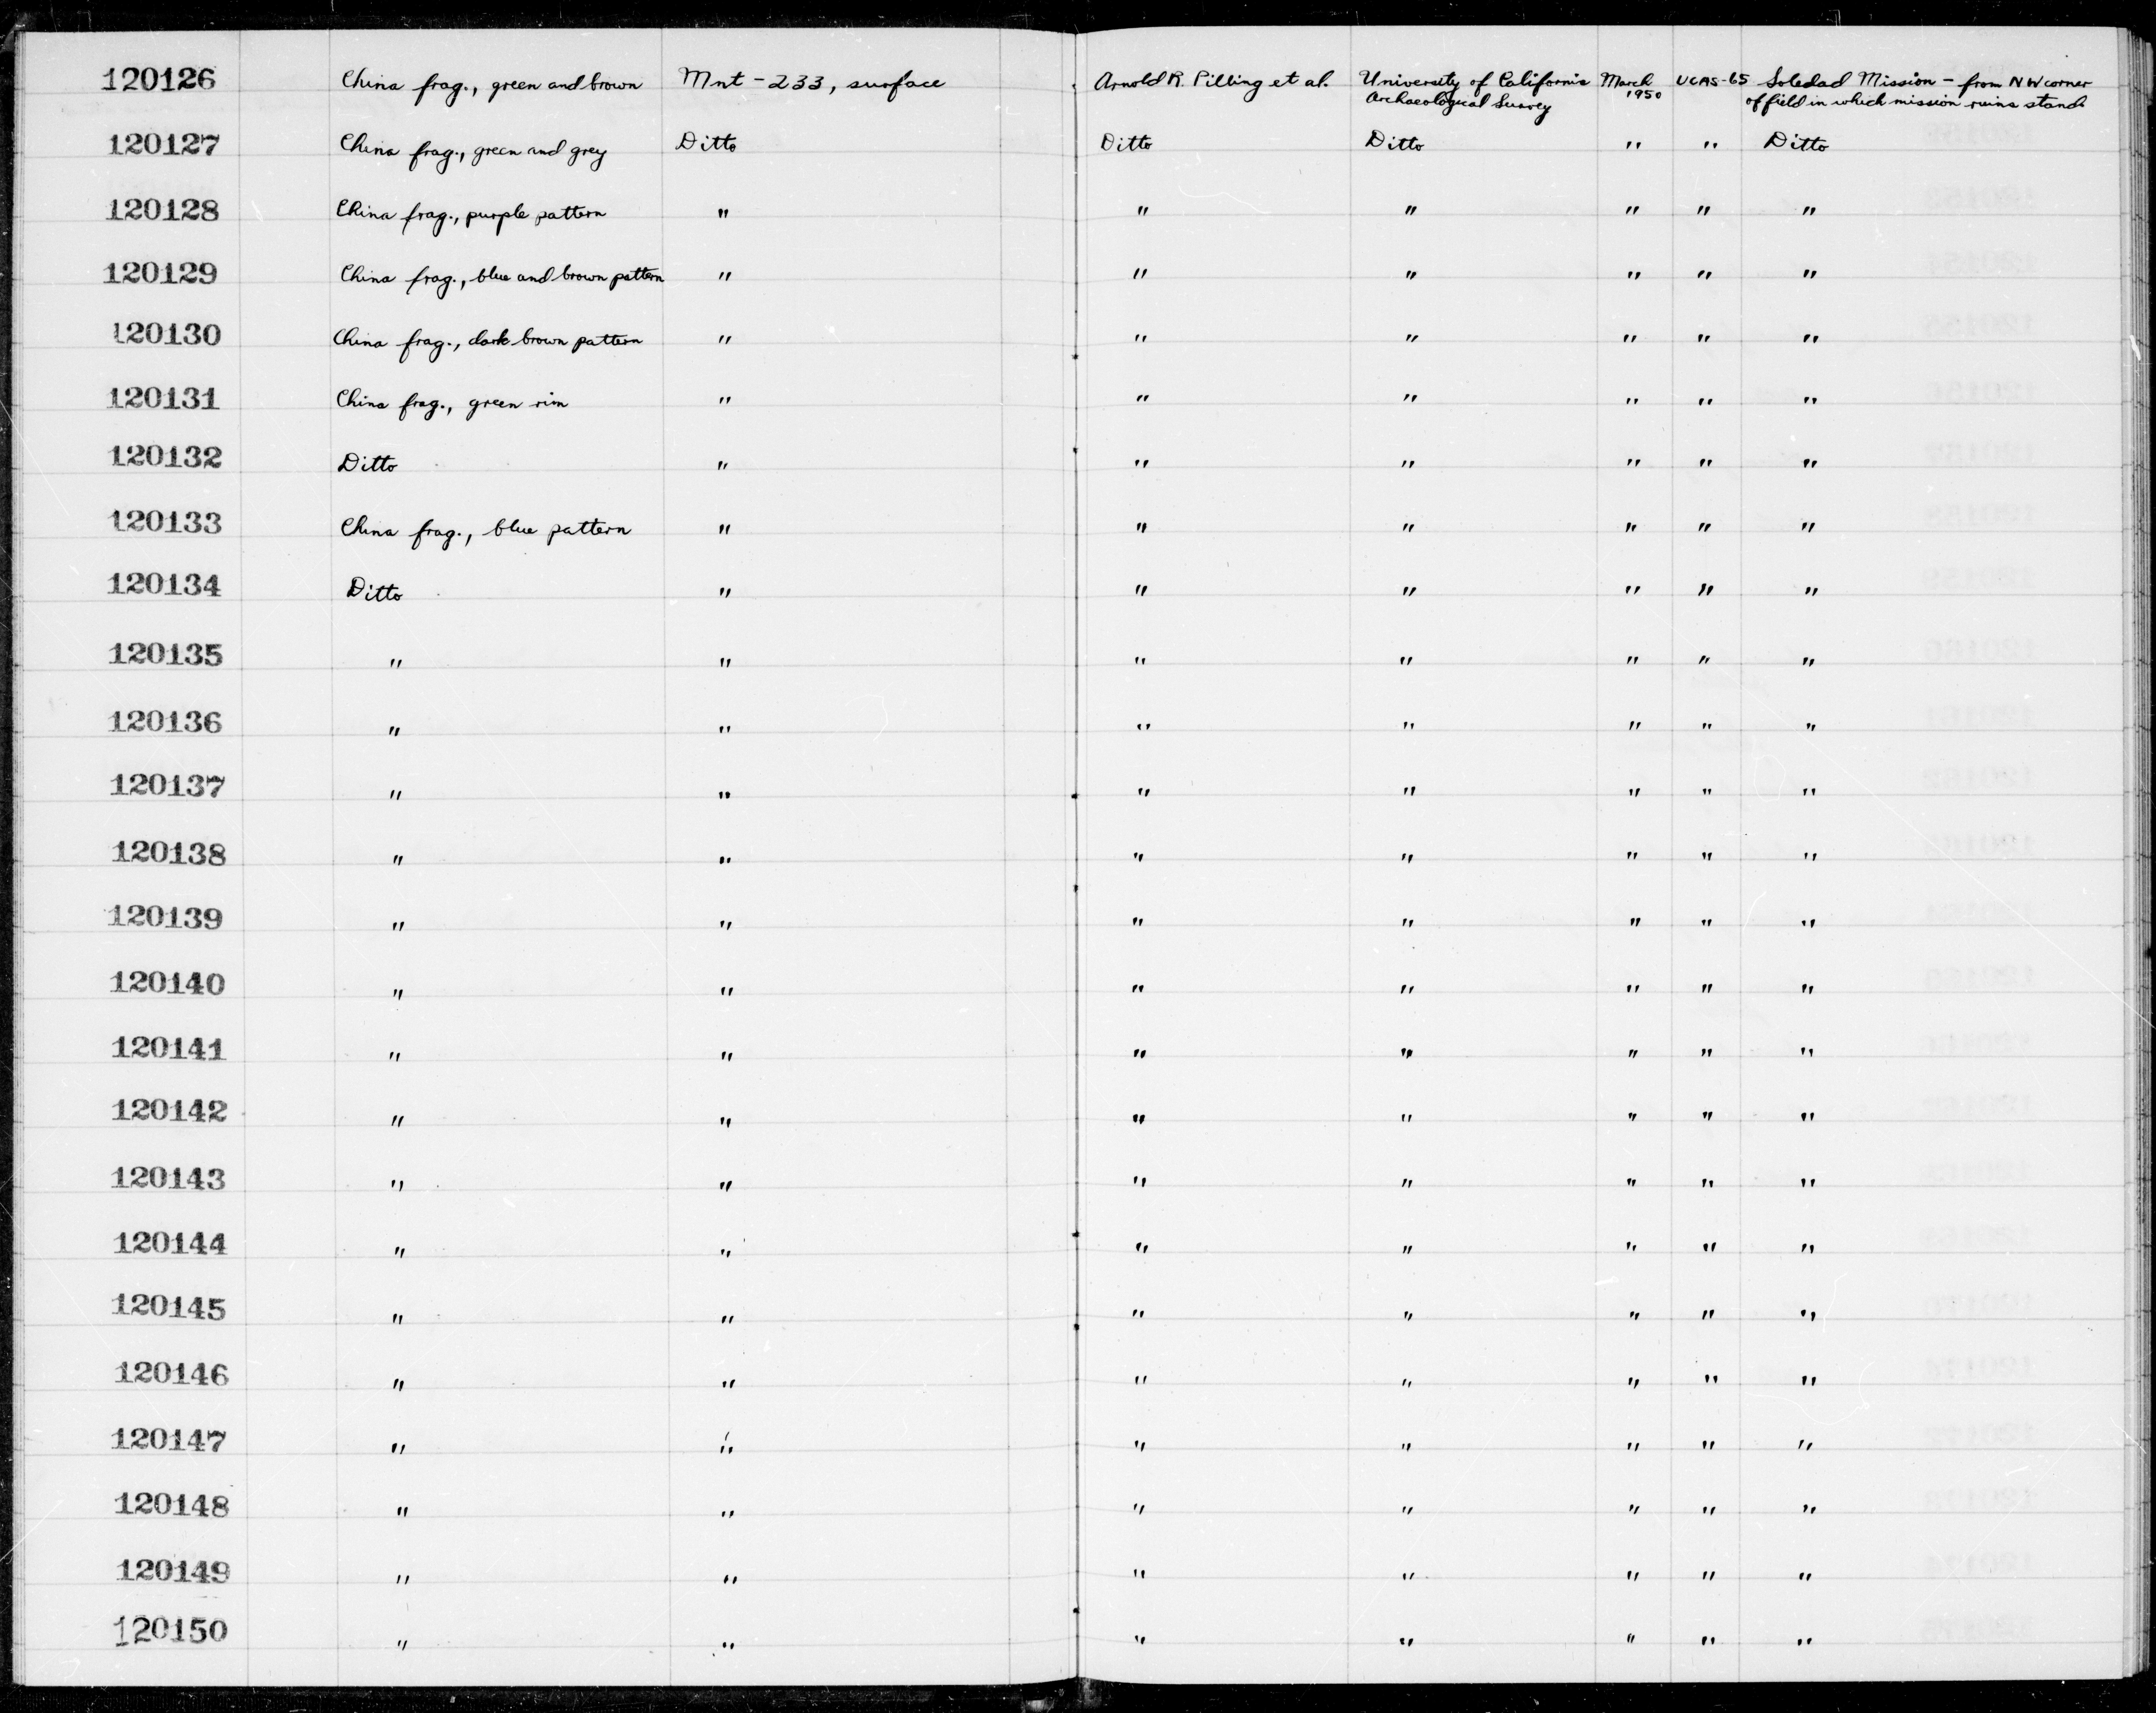 120126 China frag., green and brown Mnt-233, surface Arnold R. Pilling et al. University of California March UCAS-65 Soledad Mission - from NW corner
Archaeological Survey 1950 of field in which mission ruins stand
120127 China frag., green and grey Ditto Ditto Ditto " " Ditto
120128 China frag., purple pattern " " " " " "
120129 China frag., blue and brown pattern " " " " " "
120130 China frag., dark brown pattern " " " " " "
120131 China frag., green rim " " " " " "
120132 Ditto " " " " " "
120133 China frag., blue pattern " " " " " "
120134 Ditto " " " " " "
120135 " " " " " " "
120136 " " " " " " "
120137 " " " " " " "
120138 " " " " " " "
120139 " " " " " " "
120140 " " " " " " "
120141 " " " " " " "
120142 " " " " " " "
120143 " " " " " " "
120144 " " " " " " "
120145 " " " " " " "
120146 " " " " " " "
120147 " " " " " " "
120148 " " " " " " "
120149 " " " " " " "
120150 " " " " " " "